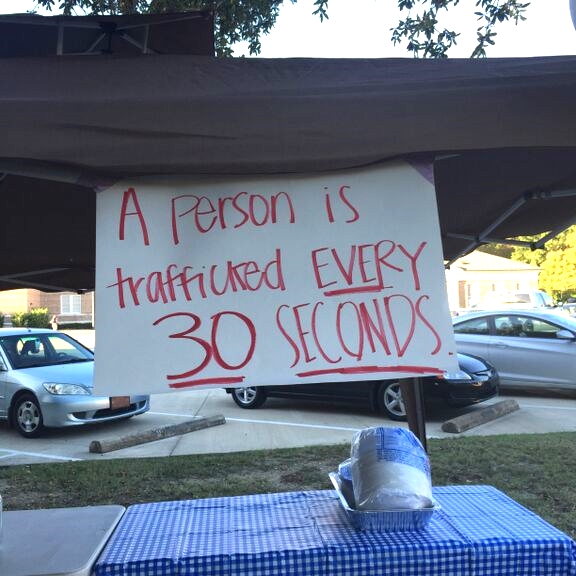 A Person is
trafficked EVERY
30 SECONDS.